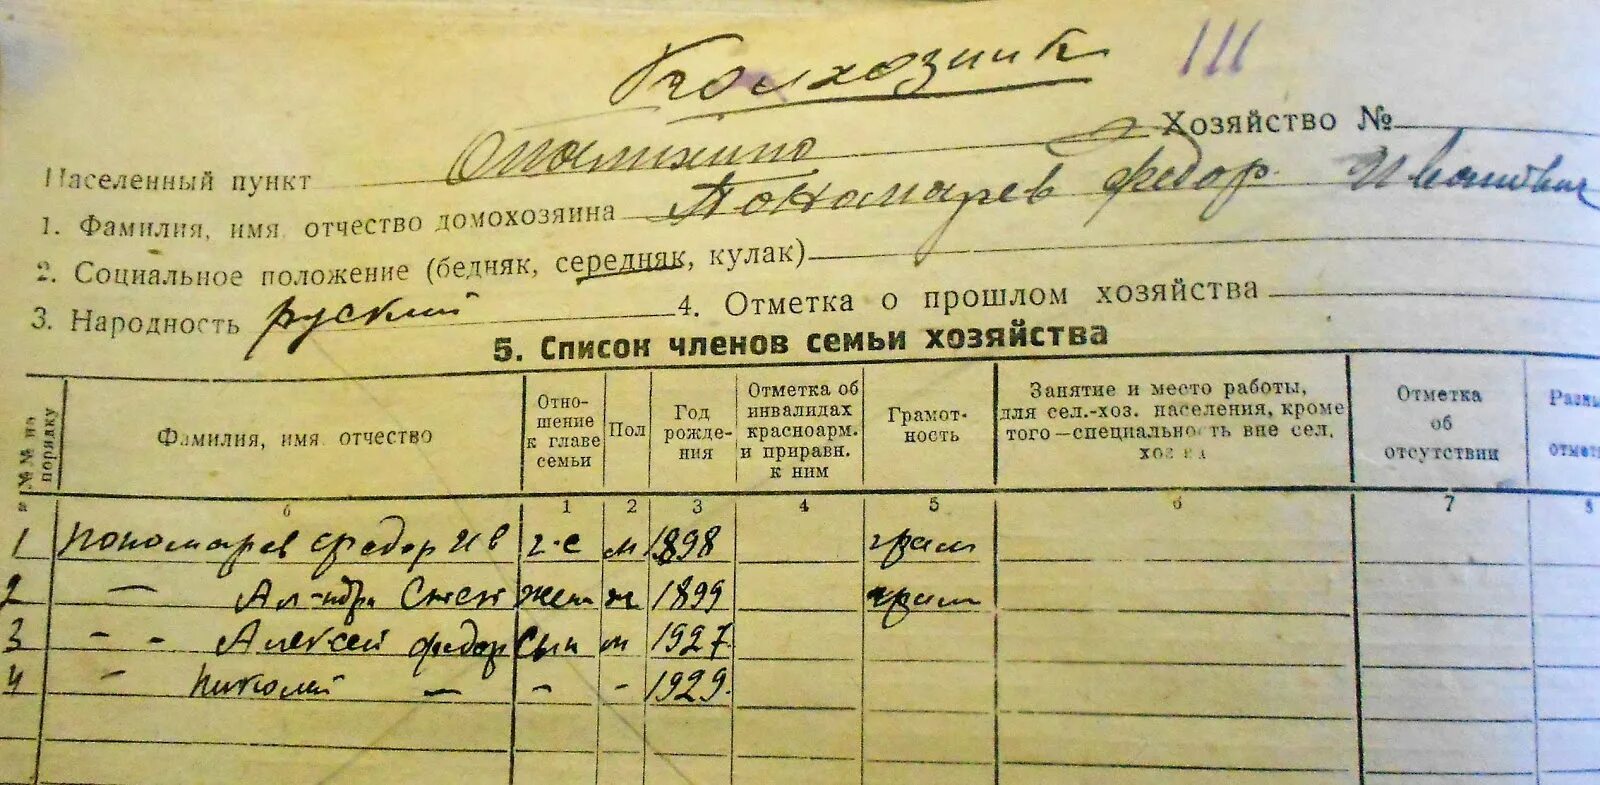 Колхозник 111
Хозяйство №
Населенный пункт
1. Фамилия, имя отчество домохозяина Пономарев Федор Иванович
2. Социальное положение (бедняк, середняк, кулак)
3. Народность русский 4. Отметка о прошлом хозяйства
5. Список членов семьи хозяйства
№№ по порядку
Фамилия, имя отчество
Отно-
шение
к главе
семьи
Пол
Год
рожде-
ния
Отметка об
инвалидах
красноарм.
и приравн.
к ним
Грамот-
ность
Занятие и место работы,
для сел.-хоз. населения, кроме
того—специальность вне сел.
хоз ва
Отметка
об
отсутствии
б 1 2 3 4 5 6 7 8
1 Пономарев Федор Ив г-с м 1898 грам
2 — Ал-ндра Степ жена ж 1899 грам
3 - - Алексей Федор Сын м 1927
4 - Николай — - - 1929.